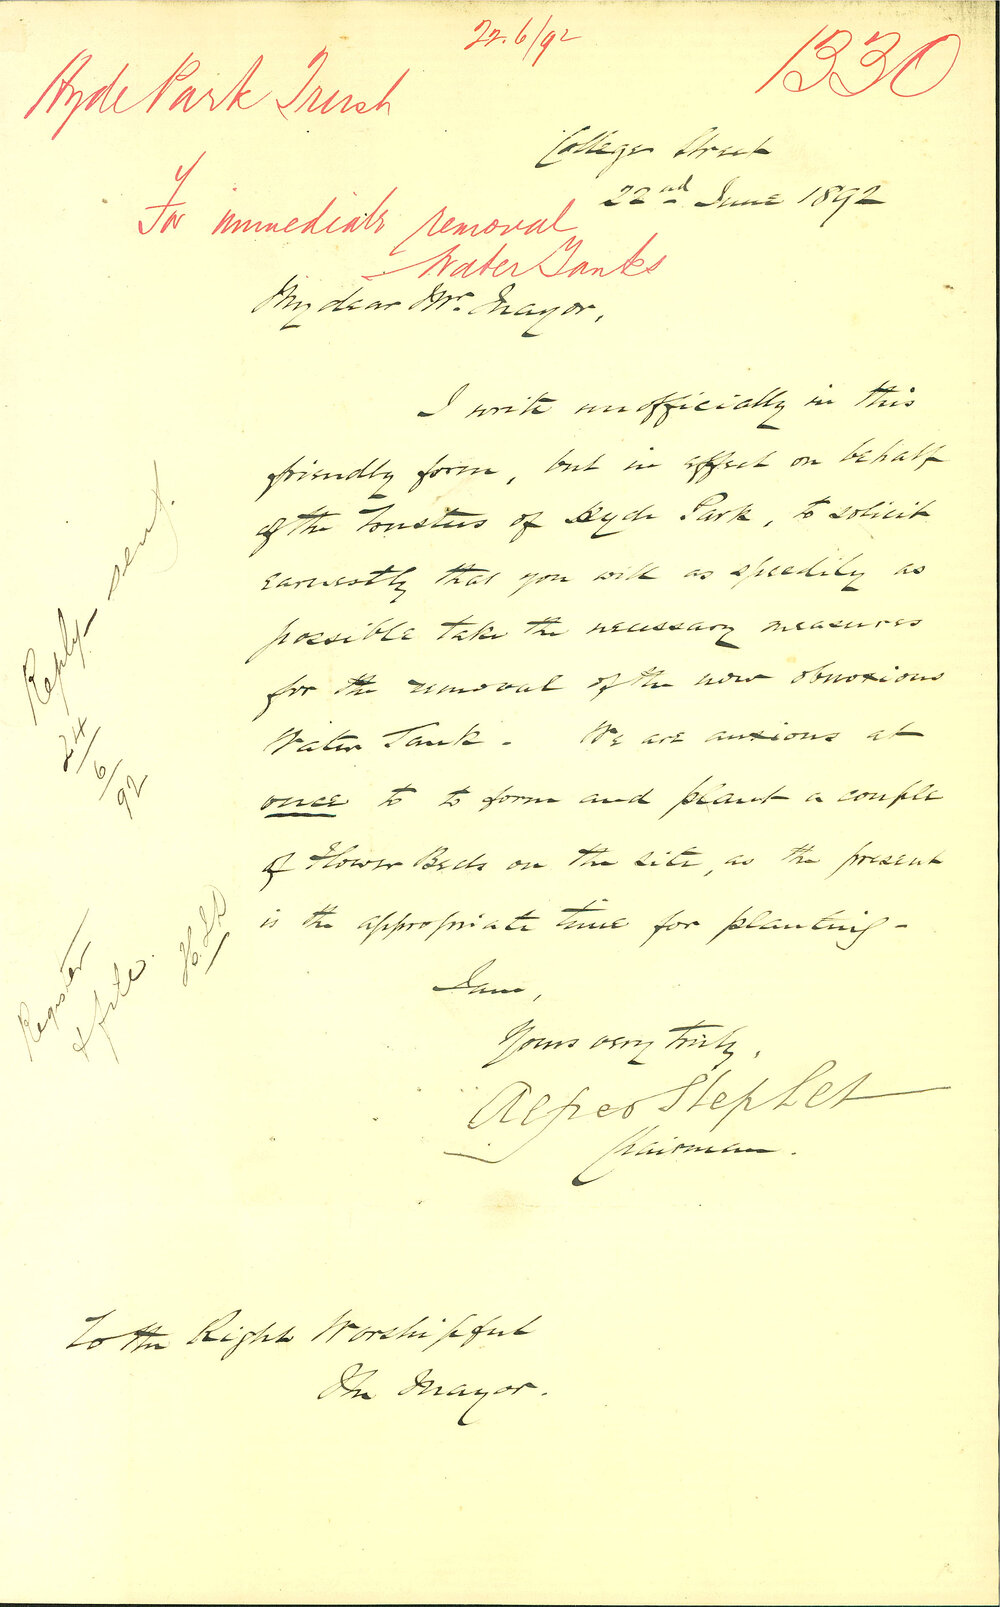 22.6/92
1330
Hyde Park Trust
College Street
22nd June 1892
For immediate removal
Water Tanks
My dear Mr. Mayor,
I write unofficially in this
friendly form, but in effect on behalf
of the Trustees of Hyde Park, to solicit
earnestly that you will as speedily as
possible take the necessary measures
for the removal of the now obnoxious
Water Tank. We are anxious at
once to to form and plant a couple
of Flower Beds on the site, as the present
is the appropriate time for planting -
I am,
Yours very truly,
Alfred Stephen
Chairman.
To the Right Worshipful
The Mayor.
Reply sent.
24/6/92
Register
& file.